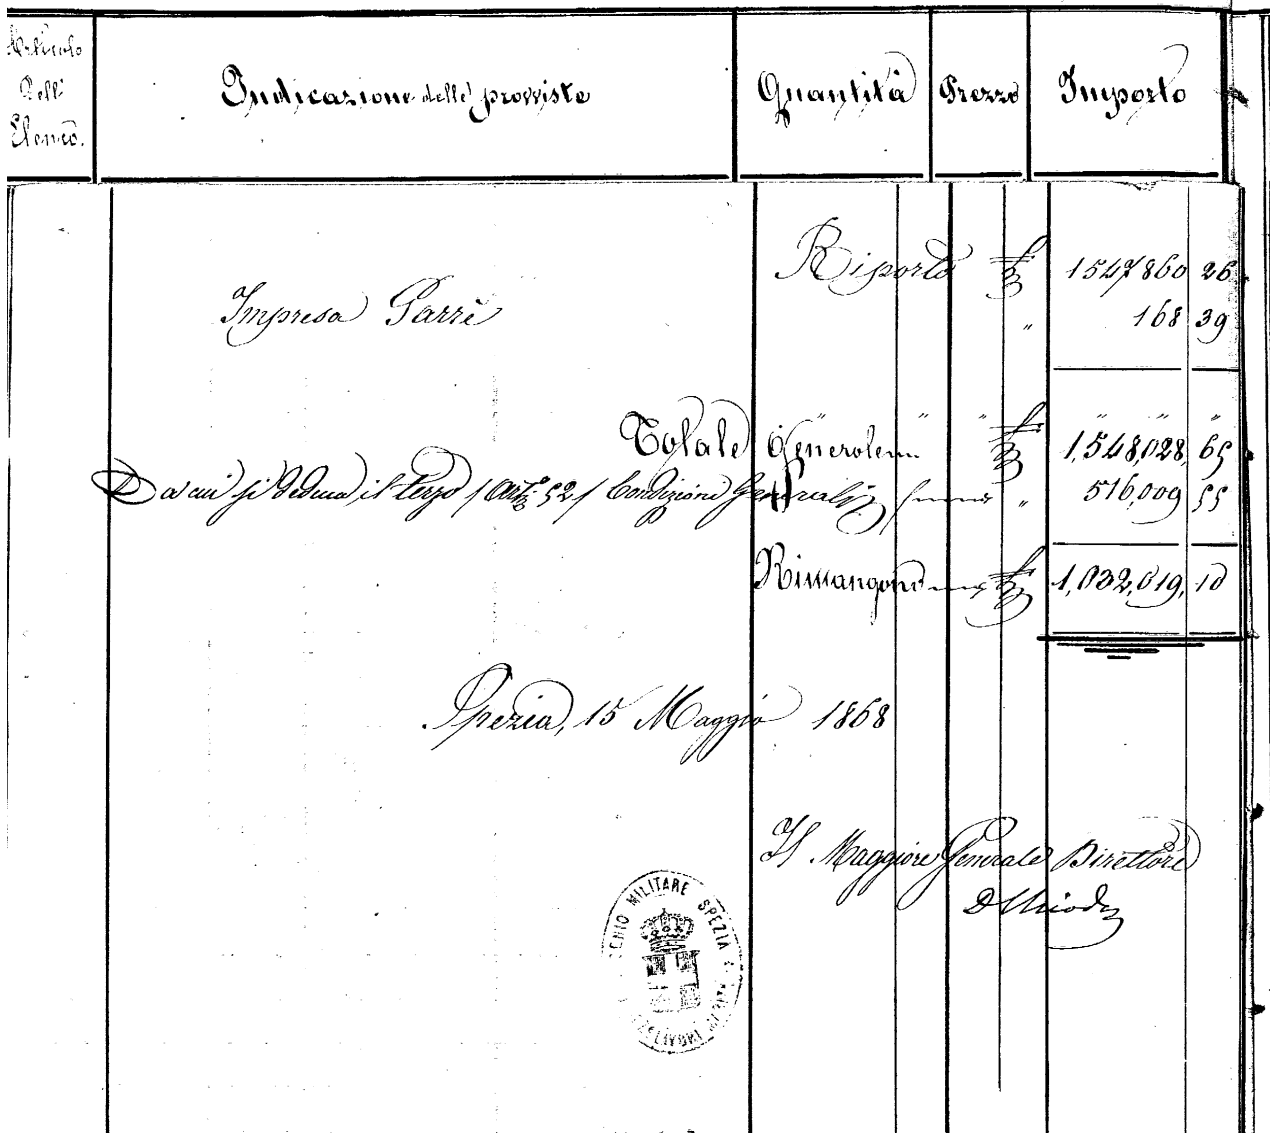 Articolo
Dell'
Elenco.
Indicazione delle provviste
Quantità
Prezzo
Importo
Riporto £ 1547860 26
Impresa Parri " 168 39
Totale Generale £ 1,548,028, 65
Da cui si deduce il terzo (Art.° 52) Condizioni Generali " 516,009 55
Rimangono £ 1,032,019, 10
Spezia, 15 Maggio 1868
Il Maggiore Generale Direttore
D Chiodo
GENIO MILITARE SPEZIA